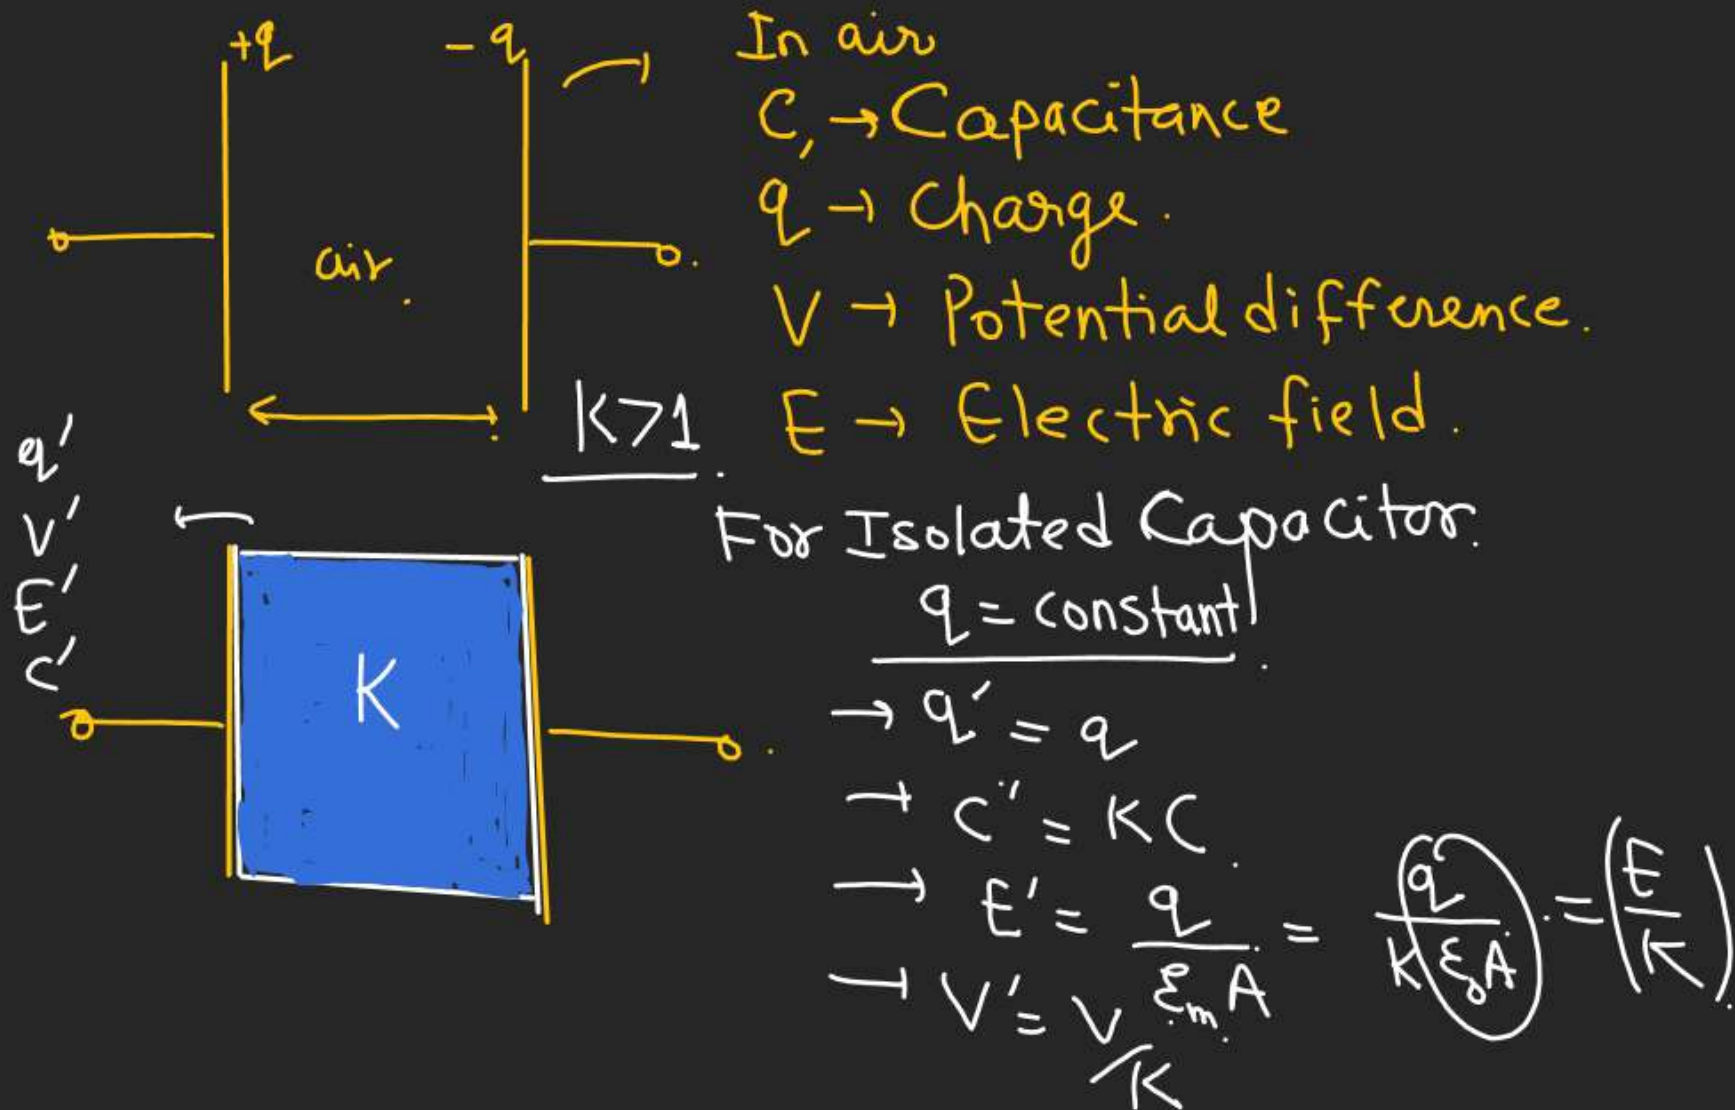 +q - q
In air
C, → Capacitance
q → Charge.
air.
V → Potential difference.
K>1
E → Electric field.
q'
V'
E'
C'
For Isolated Capacitor.
q = constant
K
→ q' = q
→ C' = KC.
→ E' = q/(ε_m A) = q/(K ε_0 A) = (E/K)
→ V' = V/K